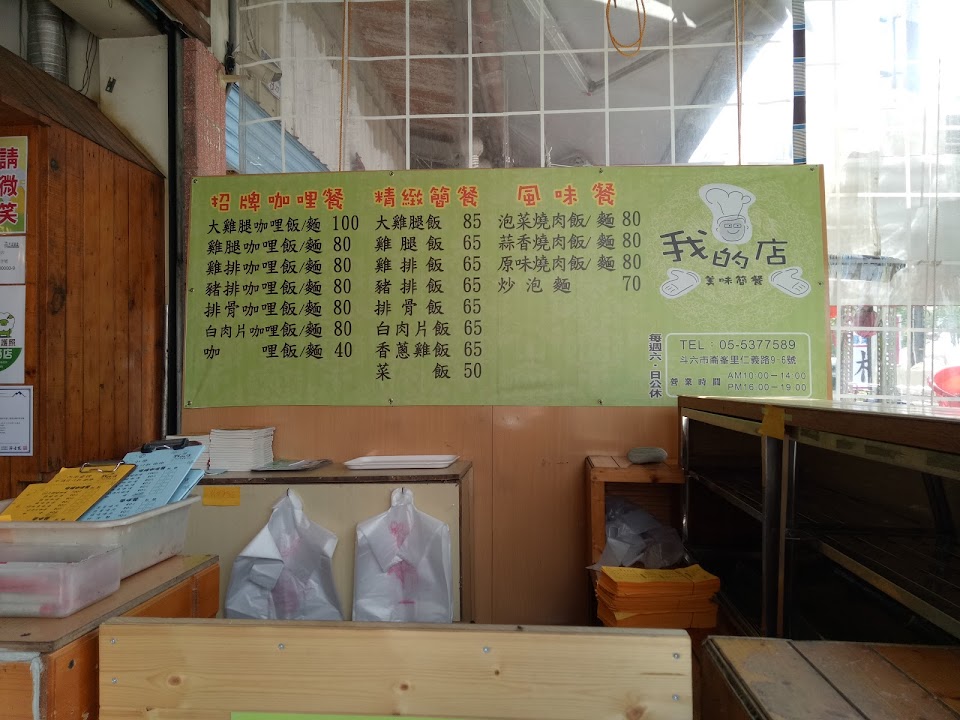 請微笑
招牌咖哩餐
大雞腿咖哩飯/麵 100
雞腿咖哩飯/麵 80
雞排咖哩飯/麵 80
豬排咖哩飯/麵 80
排骨咖哩飯/麵 80
白肉片咖哩飯/麵 80
咖哩飯/麵 40
精緻簡餐
大雞腿飯 85
雞腿飯 65
雞排飯 65
豬排飯 65
排骨飯 65
白肉片飯 65
香蔥雞飯 65
菜飯 50
風味餐
泡菜燒肉飯/麵 80
蒜香燒肉飯/麵 80
原味燒肉飯/麵 80
炒泡麵 70
我的店
美味簡餐
每週六.日公休
TEL：05-5377589
斗六市南峯里仁義路9-6號
營業時間 AM10:00－14:00
PM16:00－19:00